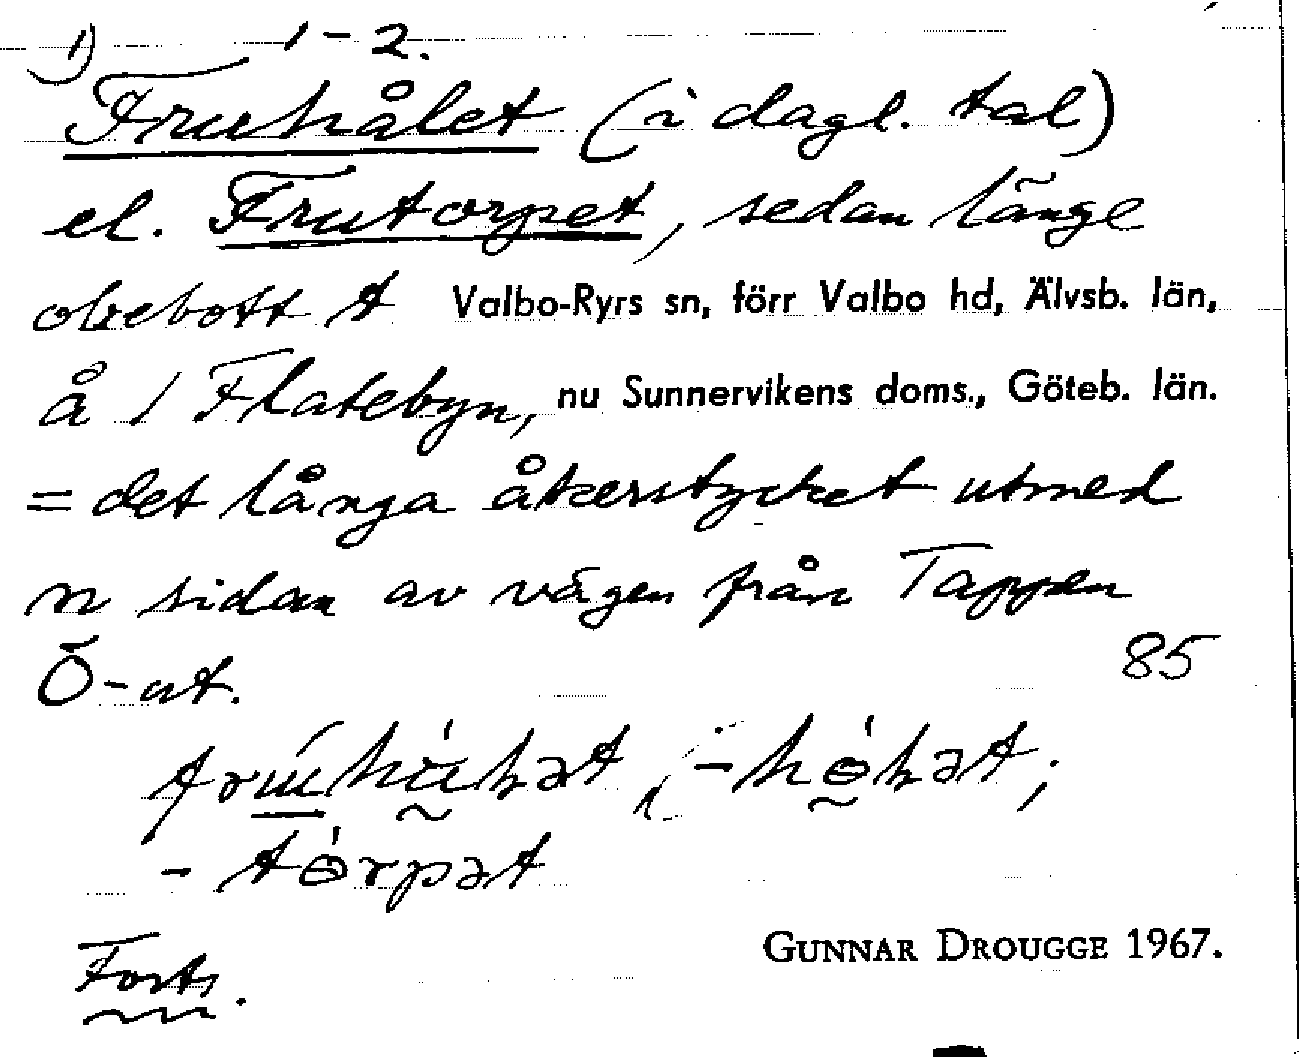 1) 1-2.
Fruhålet (i dagl. tal)
el. Frutorpet, sedan länge
obebott t Valbo-Ryrs sn, förr Valbo hd, Älvsb. län,
å 1 Flatebyn, nu Sunnervikens doms., Göteb. län.
= det långa åkerstycket utmed
n sidan av vägen från Tappen
Ö-ut. 85
-tɵ́rpət
Forts.
GUNNAR DROUGGE 1967.